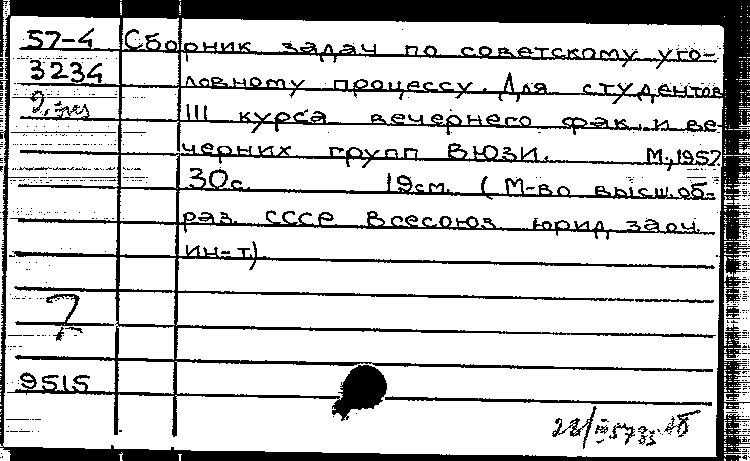 57-4 Сборник задач по советскому уго-
3234 ловному процессу. Для студентов
2. экз III курса вечернего фак. и ве
черних групп ВЮЗИ. М., 1957.
30с. 19см. (М-во высш. об-
раз. СССР Всесоюз. юрид. заоч.
ин-т)
7
9515